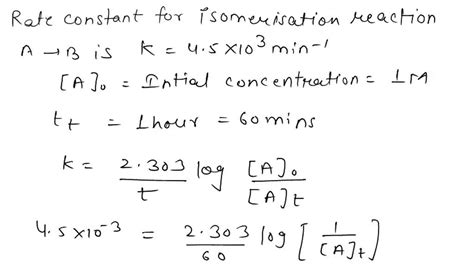 Rate constant for isomerisation reaction
A → B is K = 4.5 X10³ min⁻¹
[A]₀ = Intial concentration = 1M
t_t = 1hour = 60 mins
K = 2.303/t log [A]₀/[A]t
4.5 X10⁻³ = 2.303/60 log [1/[A]t]